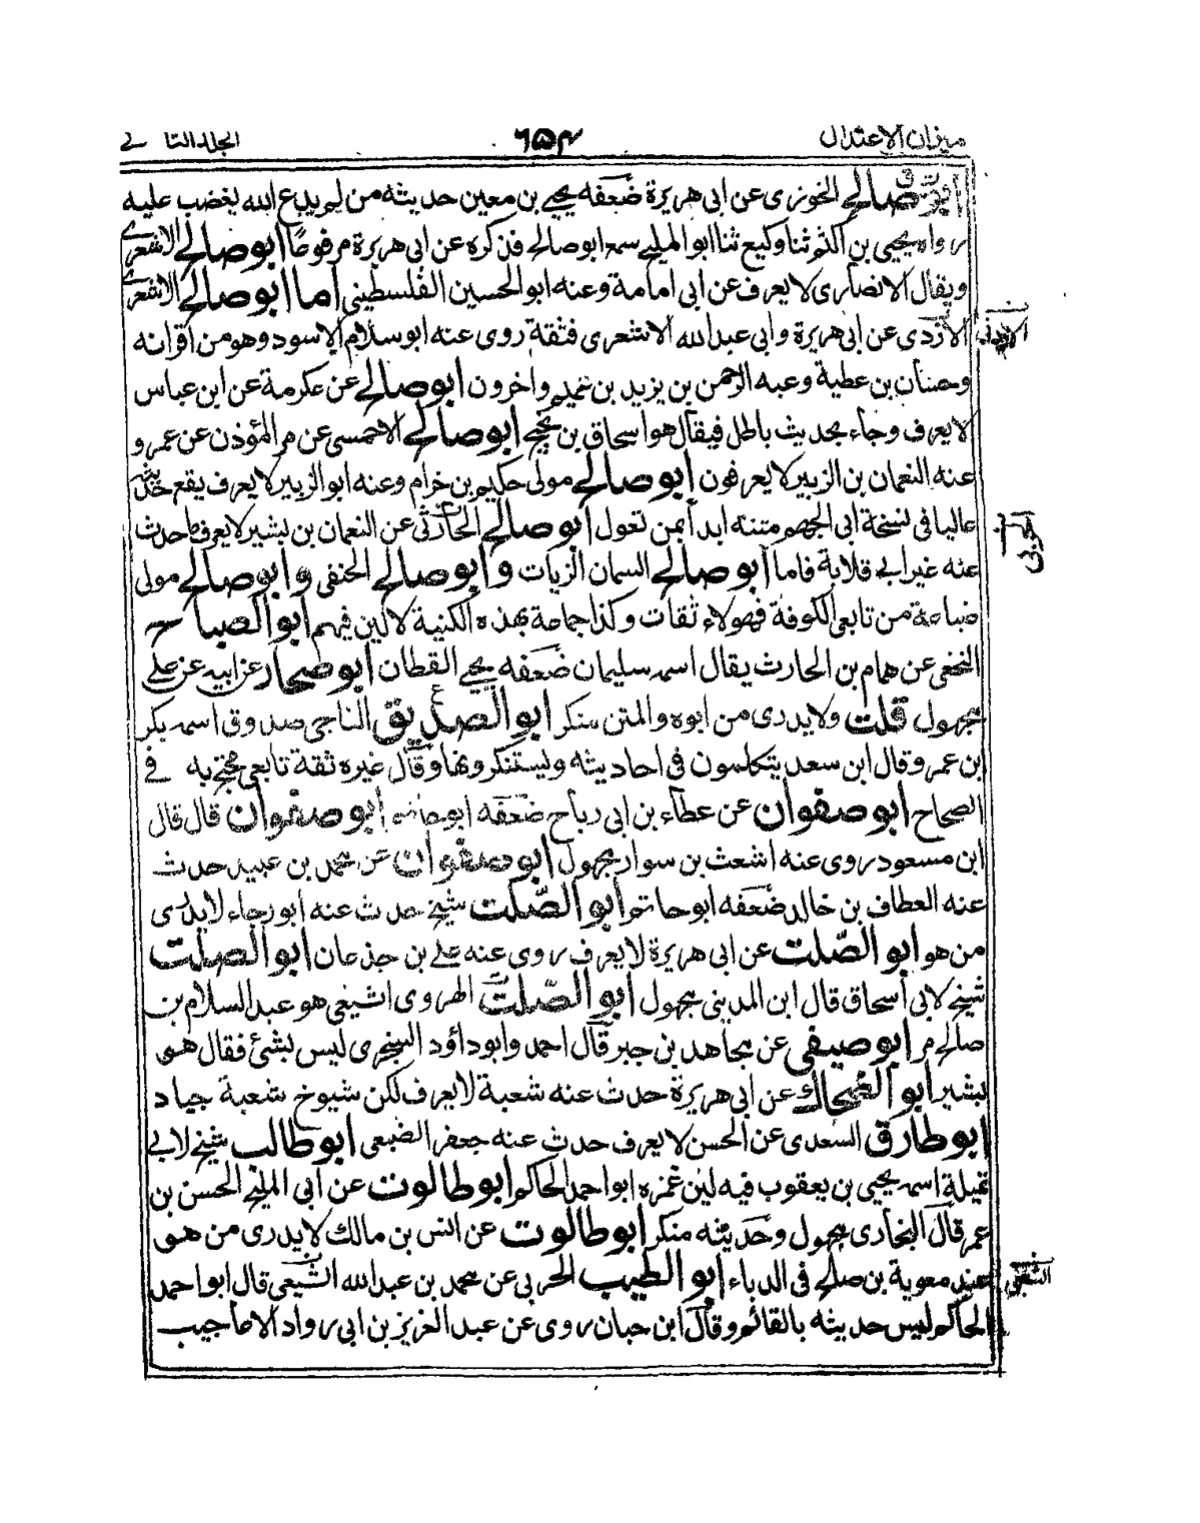 ميزان الاعتدال
٦٥٤
الجلد الثانى
ابو صالح الخوزى عن ابى هريرة ضعفه يحيى بن معين حديثه من لم يدع الله يغضب عليه
رواه يحيى بن اكثم ثنا وكيع ثنا ابو المليح سمع ابو صالح فذكره عن ابى هريرة مرفوعًا ابو صالح الاشعرى
ويقال الانصارى لا يعرف عن ابى امامة وعنه ابو الحسين الفلسطينى اما ابو صالح الاشعرى
الازدى عن ابى هريرة وابى عبدالله الاشعرى فثقة روى عنه ابو سلام الاسود وهو من اقرانه
الاردنى
وحسان بن عطية وعبد الرحمن بن يزيد بن تميم واخرون ابو صالح عن عكرمة عن ابن عباس
لا يعرف وجاء بحديث باطل فيقال هو اسحاق بن نجيح ابو صالح الاحمسى عن مر المؤذن عن عمرو
عنه النعمان بن الزبير لا يعرفون ابو صالح مولى حكيم بن خرام وعنه ابو الزبير لا يعرف يقع حديثه
عاليا فى نسخة ابى الجهم متنه ابدأ بمن تعول ابو صالح الحارثى عن النعمان بن بشير لا يعرف ما حدث
عنه غير ابى قلابة فاما ابو صالح السمان الزيات وابو صالح الحنفى وابو صالح مولى
ضباعة من تابعى الكوفة فهولاء ثقات وكذا جماعة بهذه الكنية لا لين فيهم ابو الصباح
النخعى عن همام بن الحارث يقال اسمه سليمان ضعفه يحيى القطان ابو صحار عن ابيه عن على
مجهول قلت ولا يدرى من ابوه والمتن منكر ابو الصديق ع الناجى صدوق اسمه بكر
بن عمرو قال ابن سعد يتكلمون فى احاديثه ويستنكرونها وقال غيره ثقة تابعى محتج به فى
الصحاح ابو صفوان عن عطاء بن ابى رباح ضعفه ابو حاتم ابو صفوان قال قال
ابن مسعود روى عنه اشعث بن سوار مجهول ابو صفوان عن محمد بن عبيد حدث
عنه العطاف بن خالد ضعفه ابو حاتم ابو الصّلت شيخ حدث عنه ابو رجاء لا يدرى
من هو ابو الصّلت عن ابى هريرة لا يعرف روى عنه على بن جذعان ابو الصلت
شيخ لابى اسحاق قال ابن المدينى مجهول ابو الصّلت الهروى الشيعى هو عبد السلام بن
صالح مر ابو صيفى عن مجاهد بن جبر قال احمد وابو داؤد السنجرى ليس بشئ فقال هو
بشير ابو الضحاك عن ابى هريرة حدث عنه شعبة لا يعرف لكن شيوخ شعبة جياد
ابو طارق السعدى عن الحسن لا يعرف حدث عنه جعفر الضبعى ابو طالب شيخ لابى
تميلة اسمه يحيى بن يعقوب فيه لين غمزه ابو احمد الحاكم ابو طالوت عن ابى المليح الحسن بن
عمر قال البخارى مجهول وحديثه منكر ابو طالوت عن انس بن مالك لا يدرى من هو
عنه معوية بن صالح فى الدباء ابو الطيب الحربى عن محمد بن عبد الله الشيعى قال ابو احمد
الحاكم ليس حديثه بالقائم وقال ابن حبان روى عن عبد العزيز بن ابى رواد الاعاجيب